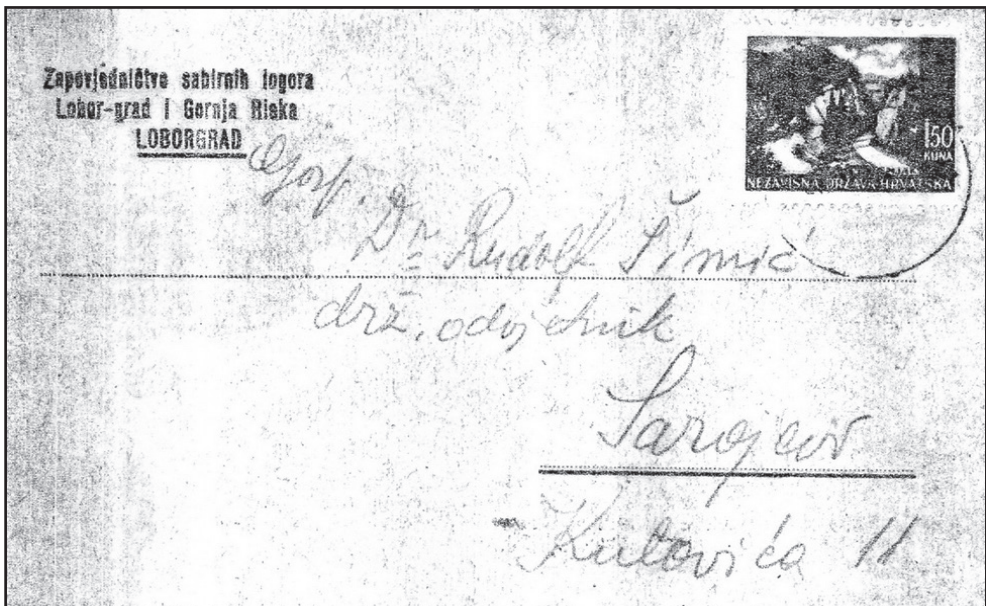 Zapovjedništvo sabirnih logora
Lobor-grad i Gornja Riska
LOBORGRAD
1.50
KUNA
NEZAVISNA DRŽAVA HRVATSKA
Gosp.
Dr Rudolf Šimić
drž. odvjetnik
Sarajevo
Kulovića 11